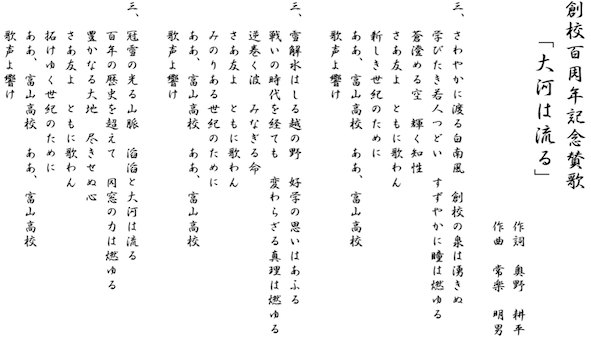 創校百周年記念賛歌
「大河は流る」
作詞　奥野　耕平
作曲　常楽　明男
三、　さわやかに渡る白南風　創校の泉は湧きぬ
学びたき若人つどい　すずやかに瞳は燃ゆる
蒼澄める空　輝く知性
さあ友よ　ともに歌わん
新しき世紀のために
ああ、富山高校　ああ、富山高校
歌声よ響け
三、　雪解水はしる越の野　好学の思いはあふる
戦いの時代を経ても　変わらざる真理は燃ゆる
逆巻く波　みなぎる命
さあ友よ　ともに歌わん
みのりある世紀のために
ああ、富山高校　ああ、富山高校
歌声よ響け
三、　冠雪の光る山脈　滔滔と大河は流る
百年の歴史を超えて　同窓の力は燃ゆる
豊かなる大地　尽きせぬ心
さあ友よ　ともに歌わん
拓けゆく世紀のために
ああ、富山高校　ああ、富山高校
歌声よ響け